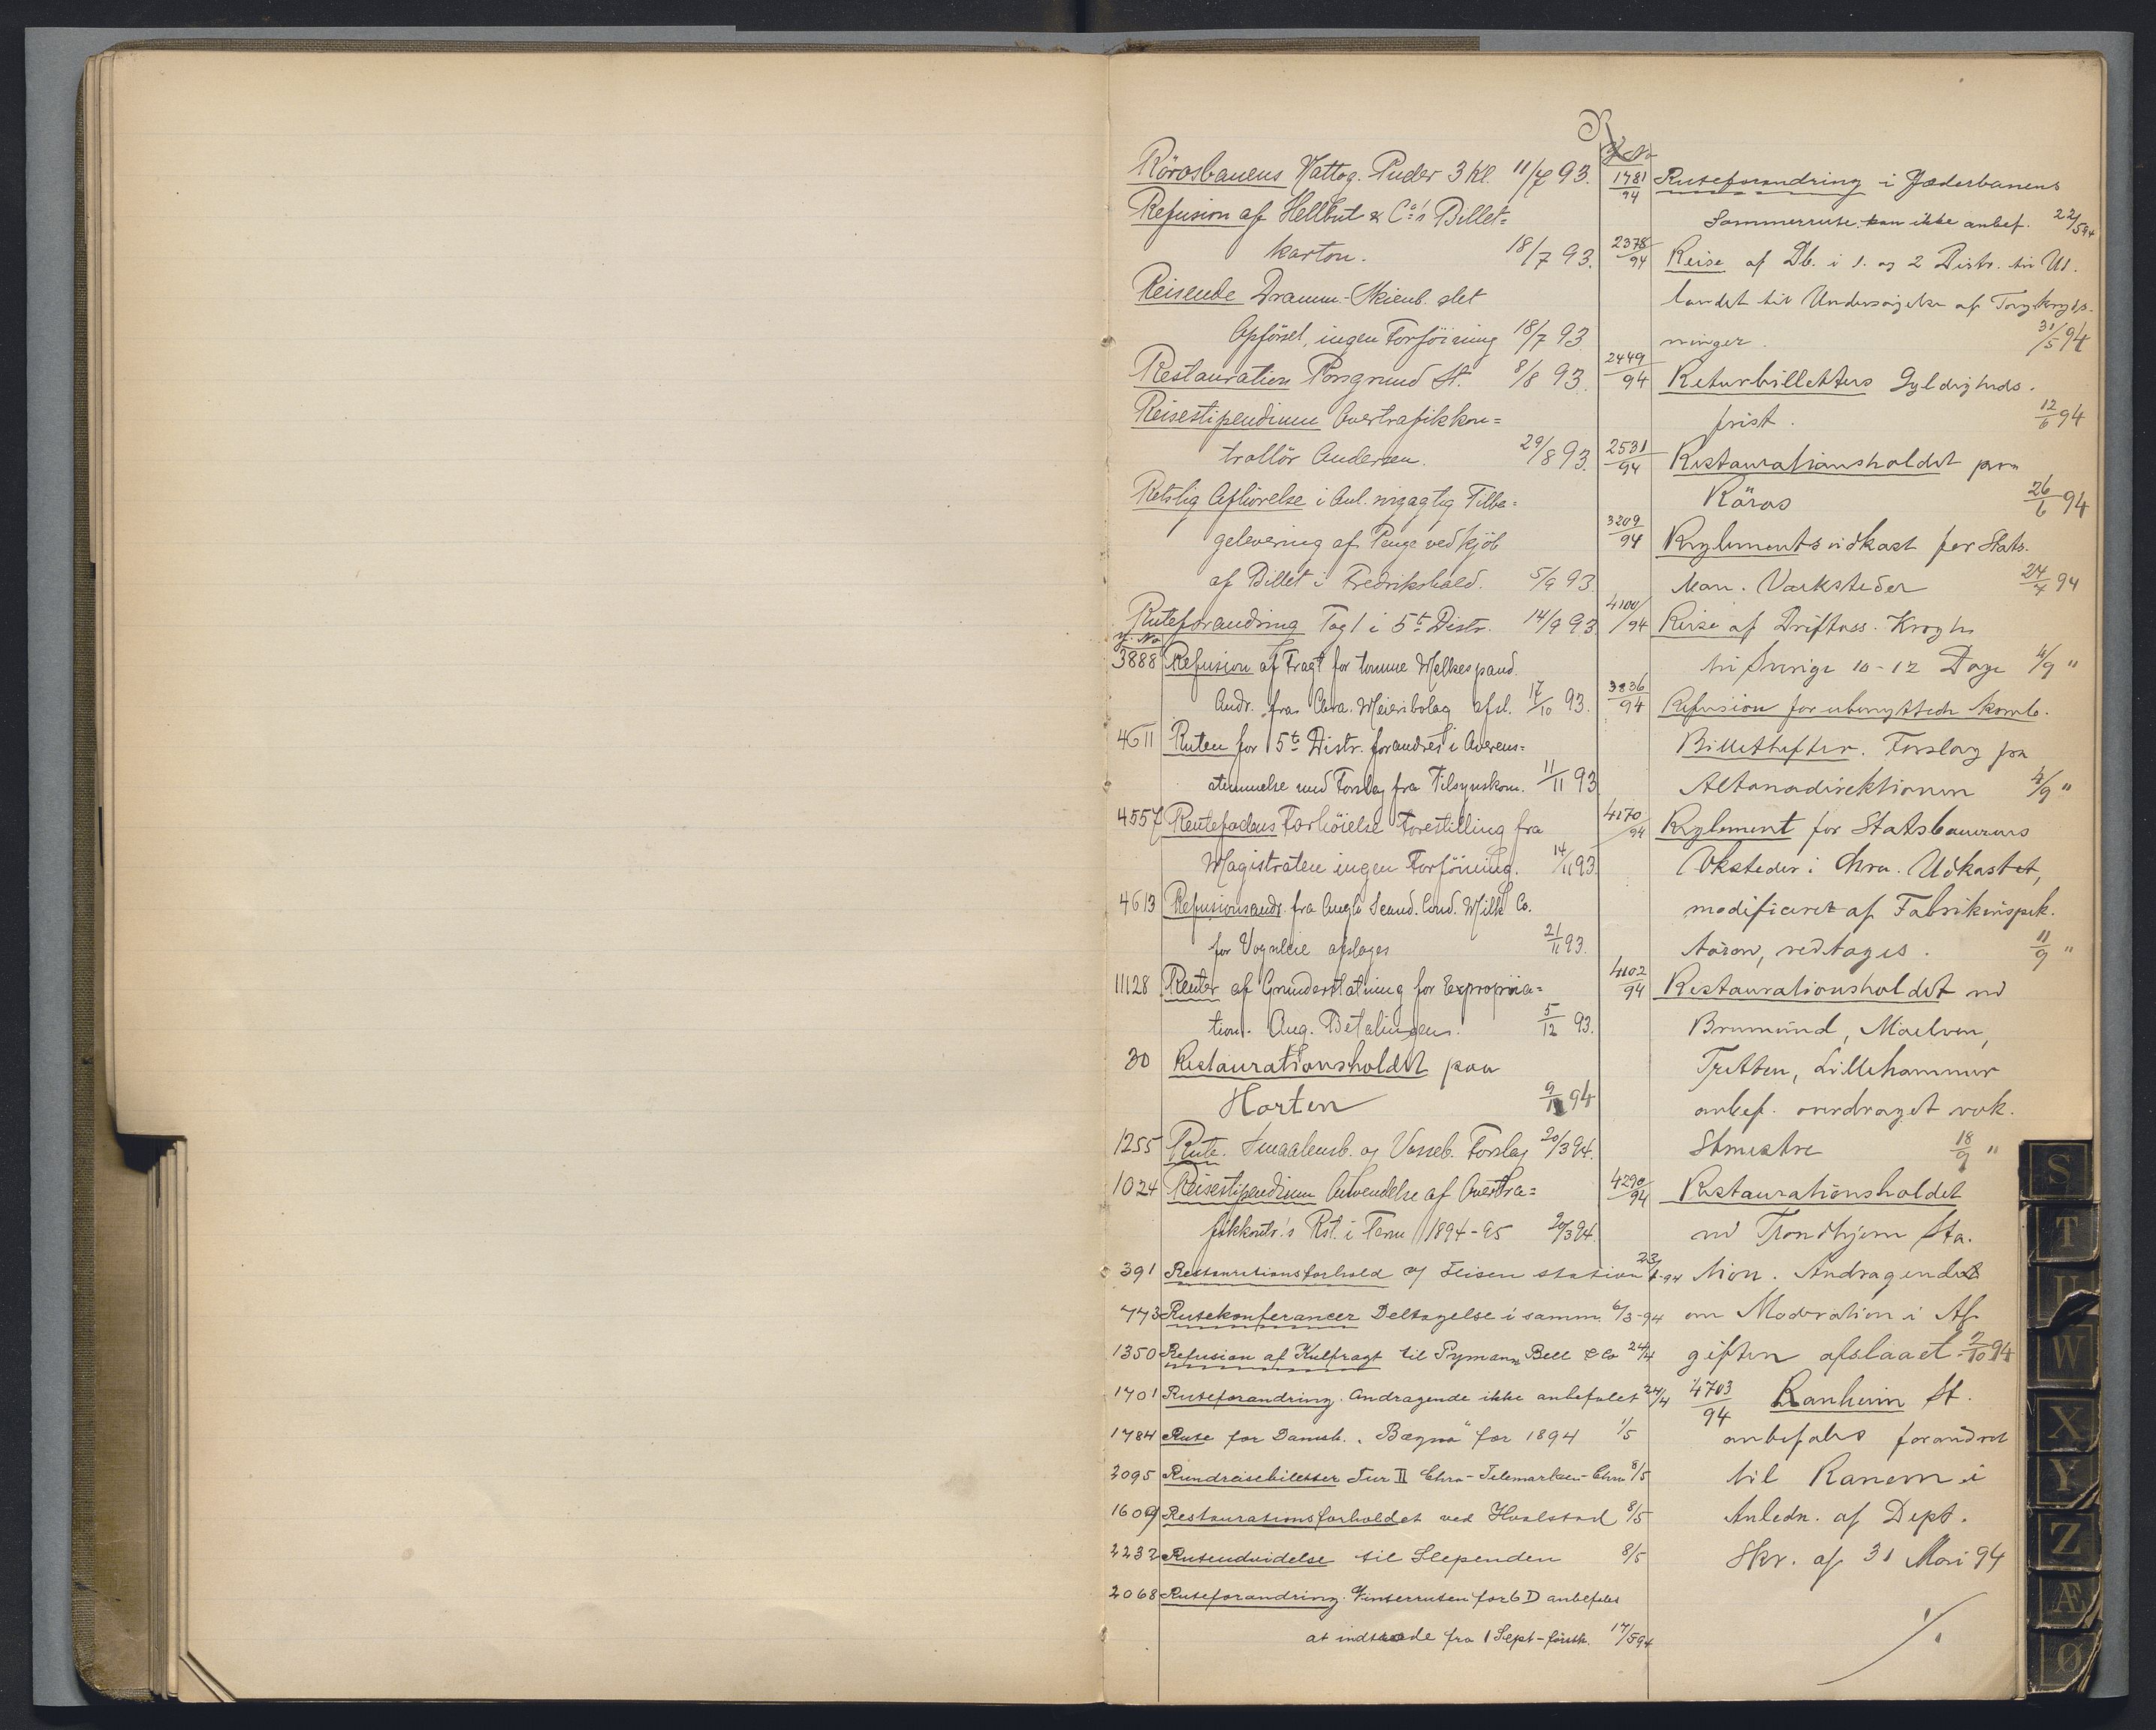 R
Rörosbanens Nattog. Puder 3 Kl. 11/7 93.
Refusion af Hellbut & Co's Billet=
karton. 18/7 93.
Reisende Dramm.-Skienb. slet
Opförsel, ingen Forföining 18/7 93
Restauration Porsgrund St. 8/8 93.
Reisestipendium Overtrafikkon=
trollör Andersen. 29/8 93.
Retslig Afhörelse i Anl. nöiagtig Tilba=
gelevering af Penge ved kjöb
af Billet i Fredrikshald. 5/9 93.
Ruteforandring Tog 1 i 5te Distr. 14/9 93
J. No
3888 Refusion af Fragt for tomme Melkespand.
Andr. fra Chra. Meieribolag afsl. 17/10 93.
4611 Ruten for 5te Distr. forandres i Overens=
stemmelse med Forslag fra Tilsynskom. 11/11 93
4557 Rentefodens Forhöielse Forestilling fra
Magistraten ingen Forföining. 14/11 93.
4613 Refusionsandr. fra Anglo Scand. Cond. Milk Co.
for Vognleie afslages 21/11 93.
11128 Renter af Grunderstatning for Expropria=
tion. Ang. Betalingen. 5/12 93.
30 Restaurationsholdet paa
Horten 9/1 94
1255 Rute. Smaalensb. og Vosseb. Forslag 20/3 94.
1024 Reisestipendium Anvendelse af Overtra=
fikkontr.'s Rst. i Term 1894-95 20/3 94.
391 Restaurationsforhold og Flisen station 23/4-94
773 Rutekonferancer Deltagelse i samm. 6/3-94
1350 Refusion af Kulfragt til Pyman Bell & Co 24/4
1701 Ruteforandring. Andragende ikke anbefalet 24/4
1784 Rute for Damsk. "Bægna" for 1894 1/5
2095 Rundreisebilletter Tur II Chra-Telemarken-Chra 8/5
1609 Restaurationsforholdet ved Hvalstad 8/5
2232 Ruteudvidelse til Slependen 8/5
2068 Ruteforandring. Vinterruten for 6 D anbefales
at indtræde fra 1 Sept-förstk. 17/5 94
J No
1781/94 Ruteforandring i Jæderbanens
Sommerrute kan ikke anbef. 22/5 94
2378/94 Reise af Db. i 1. og 2 Distr. til Ud.
landet til Undersögelse af Torgkryds.
ninger. 31/5 94
2449/94 Returbilletters Gyldigheds.
frist. 12/6 94
2531/94 Restaurationsholdet paa
Röros 26/6 94
3209/94 Reglementsudkast for Stats.
ban. Værksteder 24/7 94
4100/94 Reise af Driftass. Krogh
til Sverige 10-12 Dage 4/9 "
3836/94 Refusion for ubenyttede komb.
Billethefter. Forslag fra
Altonadirektionen 4/9 "
4170/94 Reglement for Statsbanernes
Vksteder i Chra. Udkastet,
modificeret af Fabrikinspek.
tören, vedtages. 11/9 "
4102/94 Restaurationsholdet ved
Brumund, Moelven,
Tretten, Lillehammer
anbef. overdraget vek.
Stmestre 18/9 "
4290/94 Restaurationsholdet
ved Trondhjem Sta.
tion. Andragendet
om Moderation i Af
giften afslaaet. 2/10 94
4703/94 Ranheim St.
anbefales forandret
til Ranem i
Anledn. af Dept.
Skr. af 31 Mai 94
1/1
S
T
U
W
X
Y
Z
Æ
Ø